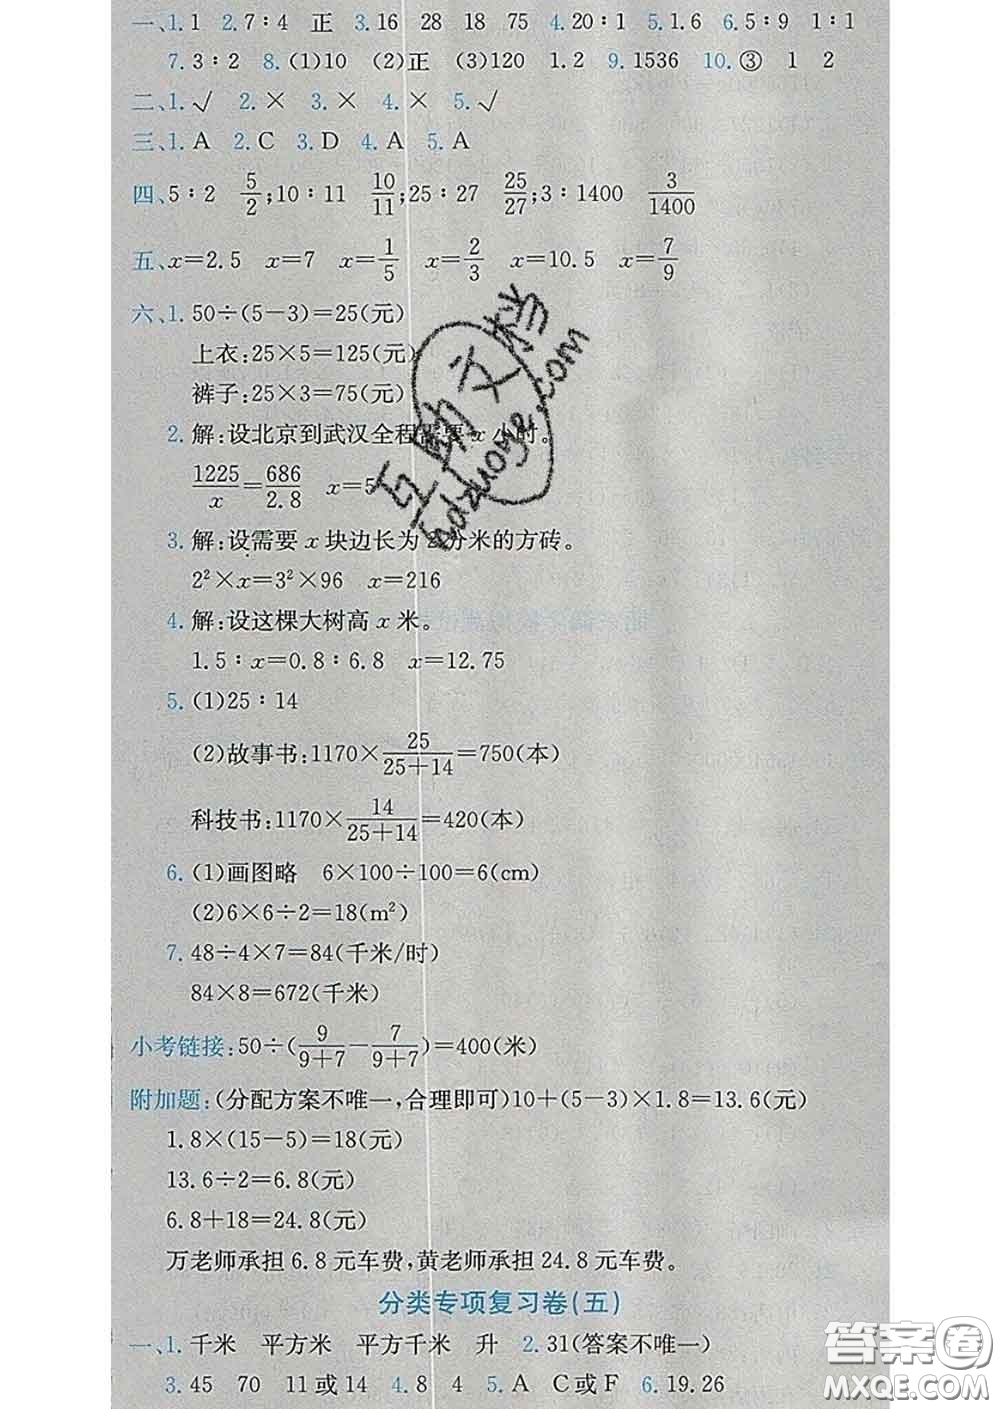 一、1.1 2.7∶4 正 3.16 28 18 75 4.20∶1 5.1.6 6.5∶9 1∶1
7.3∶2 8.(1)10 (2)正 (3)120 1.2 9.1536 10.③ 1 2
二、1.√ 2.× 3.× 4.× 5.√
三、1.A 2.C 3.D 4.A 5.A
四、5∶2 5/2;10∶11 10/11;25∶27 25/27;3∶1400 3/1400
五、x=2.5 x=7 x=1/5 x=2/3 x=10.5 x=7/9
六、1.50÷(5-3)=25(元)
上衣:25×5=125(元)
裤子:25×3=75(元)
2.解:设北京到武汉全程需要x小时。
1225/x=686/2.8 x=5
3.解:设需要x块边长为2分米的方砖。
2²×x=3²×96 x=216
4.解:设这棵大树高x米。
1.5∶x=0.8∶6.8 x=12.75
5.(1)25∶14
(2)故事书:1170×25/(25+14)=750(本)
科技书:1170×14/(25+14)=420(本)
6.(1)画图略 6×100÷100=6(cm)
(2)6×6÷2=18(m²)
7.48÷4×7=84(千米/时)
84×8=672(千米)
小考链接:50÷(9/(9+7)-7/(9+7))=400(米)
附加题:(分配方案不唯一,合理即可)10+(5-3)×1.8=13.6(元)
1.8×(15-5)=18(元)
13.6÷2=6.8(元)
6.8+18=24.8(元)
万老师承担6.8元车费,黄老师承担24.8元车费。
分类专项复习卷(五)
一、1.千米 平方米 平方千米 升 2.31(答案不唯一)
3.45 70 11或14 4.8 4 5.A C或F 6.19.26
互助文档
hdzuoye.com
答案圈
MXQE.COM